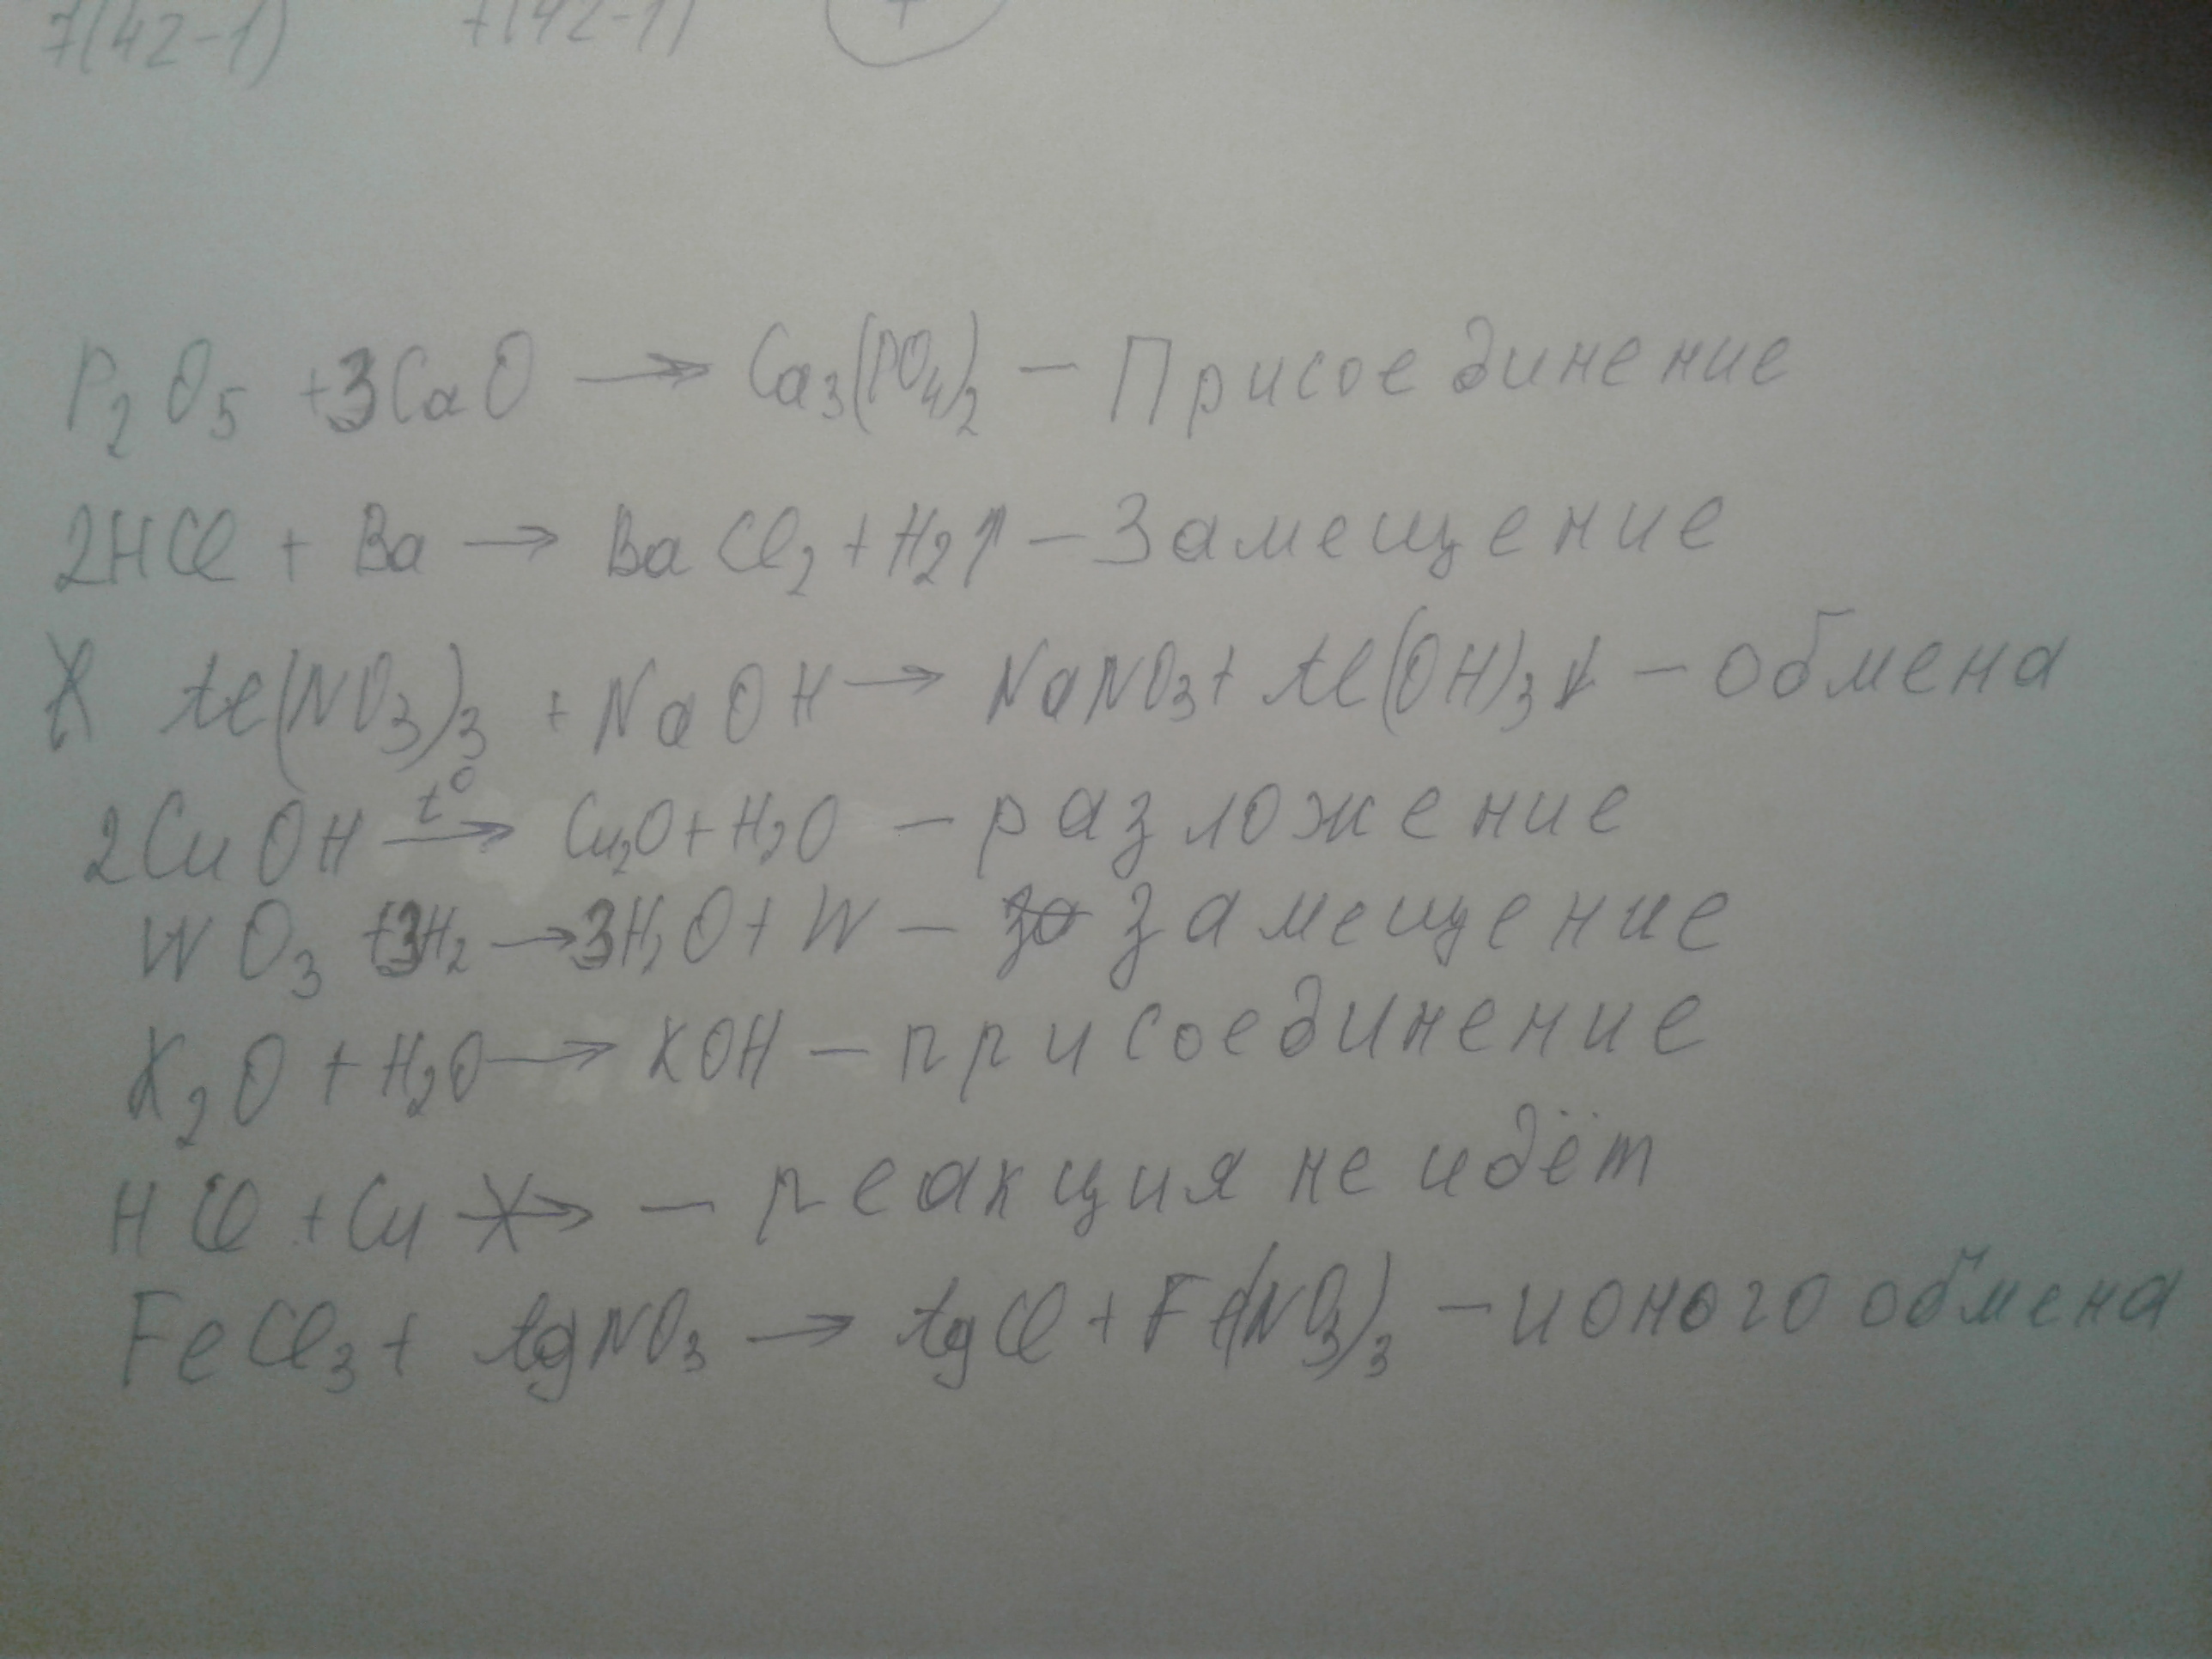 7(42-1) 7(42-1)
P₂O₅ +3CaO → Ca₃(PO₄)₂ — Присоединение
2HCl + Ba → BaCl₂ + H₂↑ — Замещение
Al(NO₃)₃ + NaOH → NaNO₃ + Al(OH)₃↓ — обмена
2CuOH t° → Cu₂O + H₂O — разложение
WO₃ +3H₂ → 3H₂O + W — замещение
K₂O + H₂O → KOH — присоединение
HCl + Cu → — реакция не идёт
FeCl₃ + AgNO₃ → AgCl + Fe(NO₃)₃ — ионого обмена